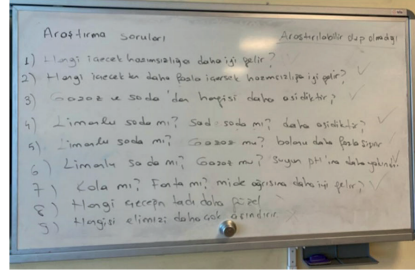 Araştırma soruları Araştırılabilir olup olmadığı
1) Hangi içecek hazımsızlığa daha iyi gelir?
2) Hangi içecekten daha fazla içersek hazımsızlığa iyi gelir? ✓
3) Gazoz ve soda'dan hangisi daha asidiktir? ✓
4) Limonlu soda mı? Sade soda mı? daha asidiktir? ✓
5) Limonlu soda mı? Gazoz mu? balonu daha fazla şişirir
6) Limonlu soda mı? Gazoz mu? Suyun pH'ına daha yakındır ✓
7) Kola mı? Fanta mı? mide ağrısına daha iyi gelir? ✓
8) Hangi içeceğin tadı daha güzel
9) Hangisi elimizi daha çok aşındırır